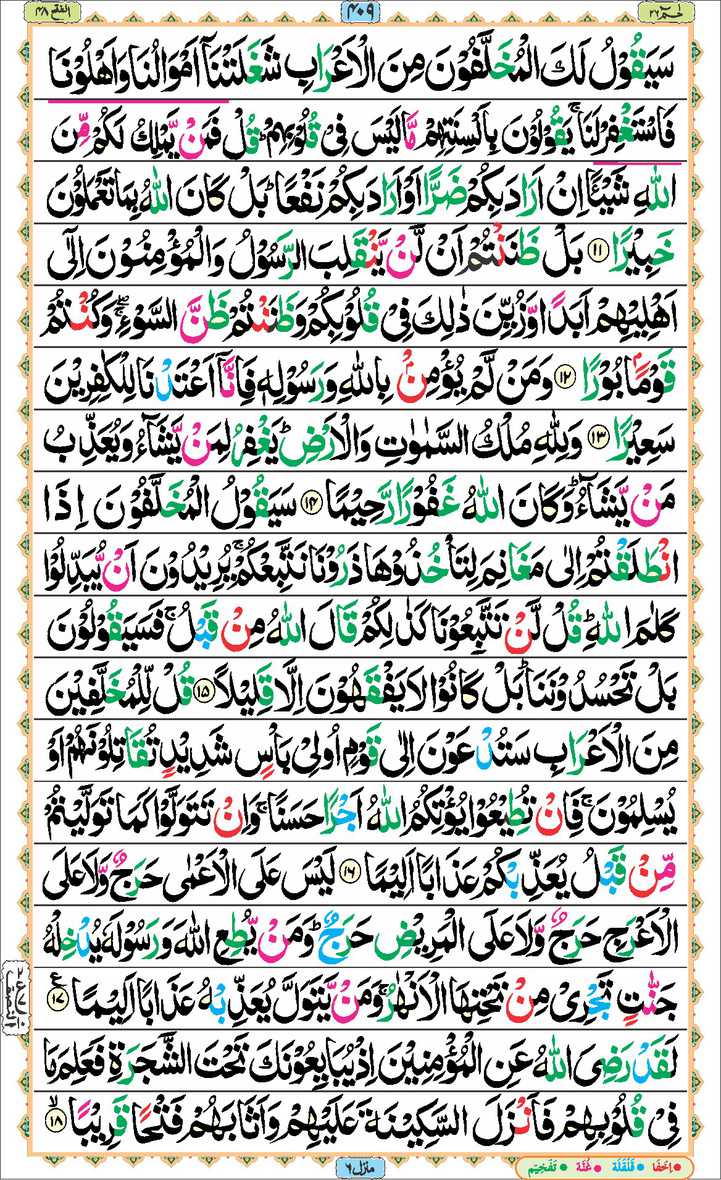 حٰمٓ ٢٦
٤٠٩
الفتح ٤٨
سَيَقُوْلُ لَكَ الْمُخَلَّفُوْنَ مِنَ الْاَعْرَابِ شَغَلَتْنَاۤ اَمْوَالُنَا وَاَهْلُوْنَا
فَاسْتَغْفِرْ لَنَا ۚ يَقُوْلُوْنَ بِاَلْسِنَتِهِمْ مَّا لَيْسَ فِىْ قُلُوْبِهِمْ ؕ قُلْ فَمَنْ يَّمْلِكُ لَكُمْ مِّنَ
اللّٰهِ شَيْـًٔا اِنْ اَرَادَ بِكُمْ ضَرًّا اَوْ اَرَادَ بِكُمْ نَفْعًا ؕ بَلْ كَانَ اللّٰهُ بِمَا تَعْمَلُوْنَ
خَبِيْرًا ١١ بَلْ ظَنَنْتُمْ اَنْ لَّنْ يَّنْقَلِبَ الرَّسُوْلُ وَالْمُؤْمِنُوْنَ اِلٰٓى
اَهْلِيْهِمْ اَبَدًا وَّزُيِّنَ ذٰلِكَ فِىْ قُلُوْبِكُمْ وَظَنَنْتُمْ ظَنَّ السَّوْءِ ۖۚ وَكُنْتُمْ
قَوْمًۢا بُوْرًا ١٢ وَمَنْ لَّمْ يُؤْمِنْۢ بِاللّٰهِ وَرَسُوْلِهٖ فَاِنَّاۤ اَعْتَدْنَا لِلْكٰفِرِيْنَ
سَعِيْرًا ١٣ وَلِلّٰهِ مُلْكُ السَّمٰوٰتِ وَالْاَرْضِ ؕ يَغْفِرُ لِمَنْ يَّشَآءُ وَيُعَذِّبُ
مَنْ يَّشَآءُ ؕ وَكَانَ اللّٰهُ غَفُوْرًا رَّحِيْمًا ١٤ سَيَقُوْلُ الْمُخَلَّفُوْنَ اِذَا
انْطَلَقْتُمْ اِلٰى مَغَانِمَ لِتَاْخُذُوْهَا ذَرُوْنَا نَتَّبِعْكُمْ ۚ يُرِيْدُوْنَ اَنْ يُّبَدِّلُوْا
كَلٰمَ اللّٰهِ ؕ قُلْ لَّنْ تَتَّبِعُوْنَا كَذٰلِكُمْ قَالَ اللّٰهُ مِنْ قَبْلُ ۚ فَسَيَقُوْلُوْنَ
بَلْ تَحْسُدُوْنَنَا ؕ بَلْ كَانُوْا لَا يَفْقَهُوْنَ اِلَّا قَلِيْلًا ١٥ قُلْ لِّلْمُخَلَّفِيْنَ
مِنَ الْاَعْرَابِ سَتُدْعَوْنَ اِلٰى قَوْمٍ اُولِىْ بَاْسٍ شَدِيْدٍ تُقَاتِلُوْنَهُمْ اَوْ
يُسْلِمُوْنَ ۚ فَاِنْ تُطِيْعُوْا يُؤْتِكُمُ اللّٰهُ اَجْرًا حَسَنًا ۚ وَاِنْ تَتَوَلَّوْا كَمَا تَوَلَّيْتُمْ
مِّنْ قَبْلُ يُعَذِّبْكُمْ عَذَابًا اَلِيْمًا ١٦ لَيْسَ عَلَى الْاَعْمٰى حَرَجٌ وَّلَا عَلَى
الْاَعْرَجِ حَرَجٌ وَّلَا عَلَى الْمَرِيْضِ حَرَجٌ ؕ وَمَنْ يُّطِعِ اللّٰهَ وَرَسُوْلَهٗ يُدْخِلْهُ
جَنّٰتٍ تَجْرِىْ مِنْ تَحْتِهَا الْاَنْهٰرُ ۚ وَمَنْ يَّتَوَلَّ يُعَذِّبْهُ عَذَابًا اَلِيْمًا ١٧ ع
لَقَدْ رَضِىَ اللّٰهُ عَنِ الْمُؤْمِنِيْنَ اِذْ يُبَايِعُوْنَكَ تَحْتَ الشَّجَرَةِ فَعَلِمَ مَا
فِىْ قُلُوْبِهِمْ فَاَنْزَلَ السَّكِيْنَةَ عَلَيْهِمْ وَاَثَابَهُمْ فَتْحًا قَرِيْبًا ١٨ ۙ
منزل ٦
اِخفَا قَلْقَلَة غُنَّة تَفْخِيْم